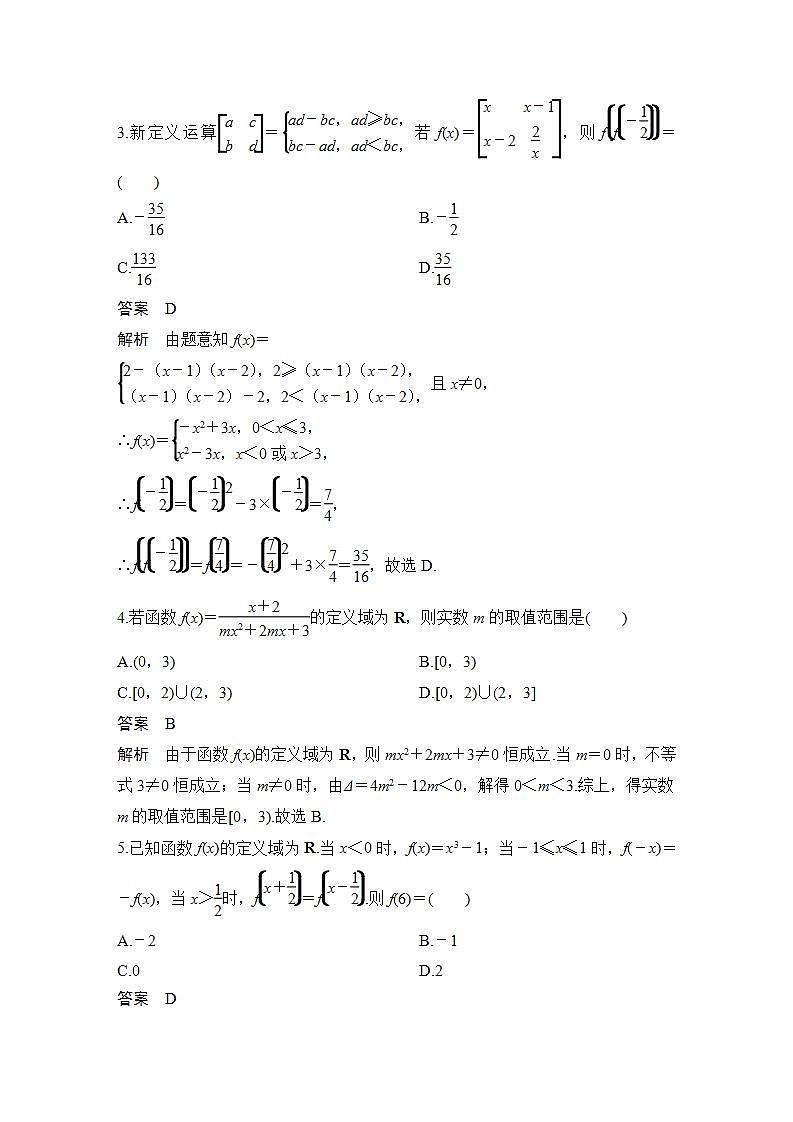 3.新定义运算[a c; b d]={ad-bc，ad≥bc，bc-ad，ad<bc，若 f(x)=[x x-1; x-2 2/x]，则 f(f(-1/2))=
(　　)
A.-35/16　B.-1/2
C.133/16　D.35/16
答案　D
解析　由题意知 f(x)=
{2-（x-1）（x-2），2≥（x-1）（x-2），（x-1）（x-2）-2，2<（x-1）（x-2），且 x≠0，
∴f(x)={-x²+3x，0<x≤3，x²-3x，x<0 或 x>3，
∴f(-1/2)=(-1/2)²-3×(-1/2)=7/4，
∴f(f(-1/2))=f(7/4)=-(7/4)²+3×7/4=35/16，故选 D.
4.若函数 f(x)=(x+2)/(mx²+2mx+3)的定义域为 R，则实数 m 的取值范围是(　　)
A.(0，3)　B.[0，3)
C.[0，2)∪(2，3)　D.[0，2)∪(2，3]
答案　B
解析　由于函数 f(x)的定义域为 R，则 mx²+2mx+3≠0 恒成立.当 m=0 时，不等
式 3≠0 恒成立；当 m≠0 时，由Δ=4m²-12m<0，解得 0<m<3.综上，得实数
m 的取值范围是[0，3).故选 B.
5.已知函数 f(x)的定义域为 R.当 x<0 时，f(x)=x³-1；当-1≤x≤1 时，f(-x)=
-f(x)，当 x>1/2时，f(x+1/2)=f(x-1/2).则 f(6)=(　　)
A.-2　B.-1
C.0　D.2
答案　D